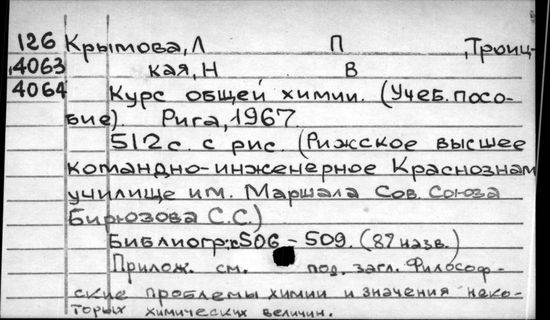 126 Крымова, Л П , Троиц-
4063 кая, Н В
4064 Курс общей химии. (Учеб. посо-
бие). Рига, 1967.
512 с. с рис. (Рижское высшее
командно-инженерное Краснознам
училище им. Маршала Сов. Союза
Бирюзова С.С.)
Библиогр: с 506 – 509. (87 назв.)
Прилож. см. под. загл. Философ-
ские проблемы химии и значения неко-
торых химических величин.